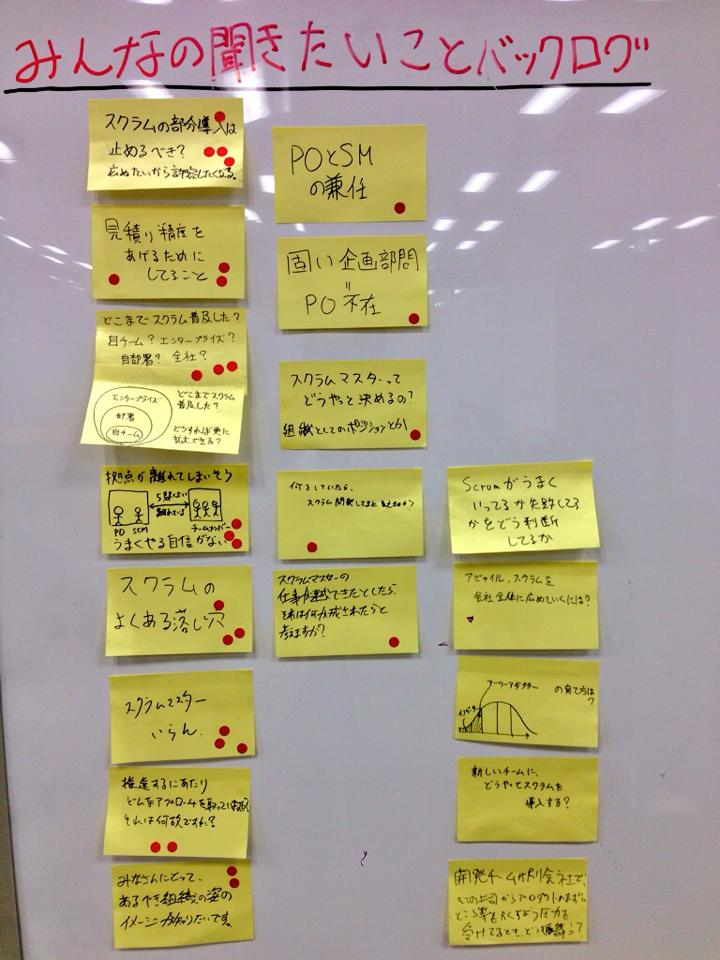 みんなの聞きたいことバックログ
スクラムの部分導入は
止めるべき？
広めたいから許容したくなる。
見積り精度を
あげるために
してること
どこまでスクラム普及した？
自チーム？エンタープライズ？
自部署？ 全社？
エンタープライズ
部署
自チーム
どこまでスクラム
普及した？
どうすれば更に
拡大できる？
拠点が離れてしまいそう
5駅くらい
離れている
PO SCM
チームメンバー
うまくやる自信がない
スクラムの
よくある落し穴
スクラムマスター
いらん。
推進するにあたり
どんなアプローチを取っていますか？
それは何故ですか？
みなさんにとって、
あるべき組織の姿の
イメージが知りたいです。
POとSM
の兼任
固い企画部門
＝
PO不在
スクラムマスターって
どうやって決めるの？
組織としてのポジションとか
何をしていたら、
スクラム開発してると
スクラムマスターの
仕事が達成できたとしたら、
それは何が成されたらと
考えますか？
Scrumがうまく
いってるか失敗してる
かをどう判断
してるか
アジャイル、スクラムを
会社全体に広めていくには？
アーリーアダプター
の育て方は？
新しいチームに、
どうやってスクラムを
導入する？
開発チームが別会社で、
受けてるとき、どう振舞う？